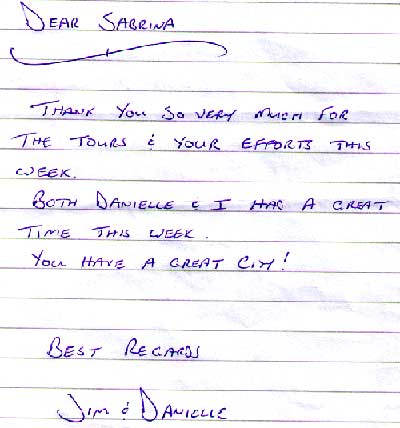 DEAR SABRINA
THANK YOU SO VERY MUCH FOR
THE TOURS & YOUR EFFORTS THIS
WEEK.
BOTH DANIELLE & I HAD A GREAT
TIME THIS WEEK.
YOU HAVE A GREAT CITY!
BEST REGARDS
JIM & DANIELLE